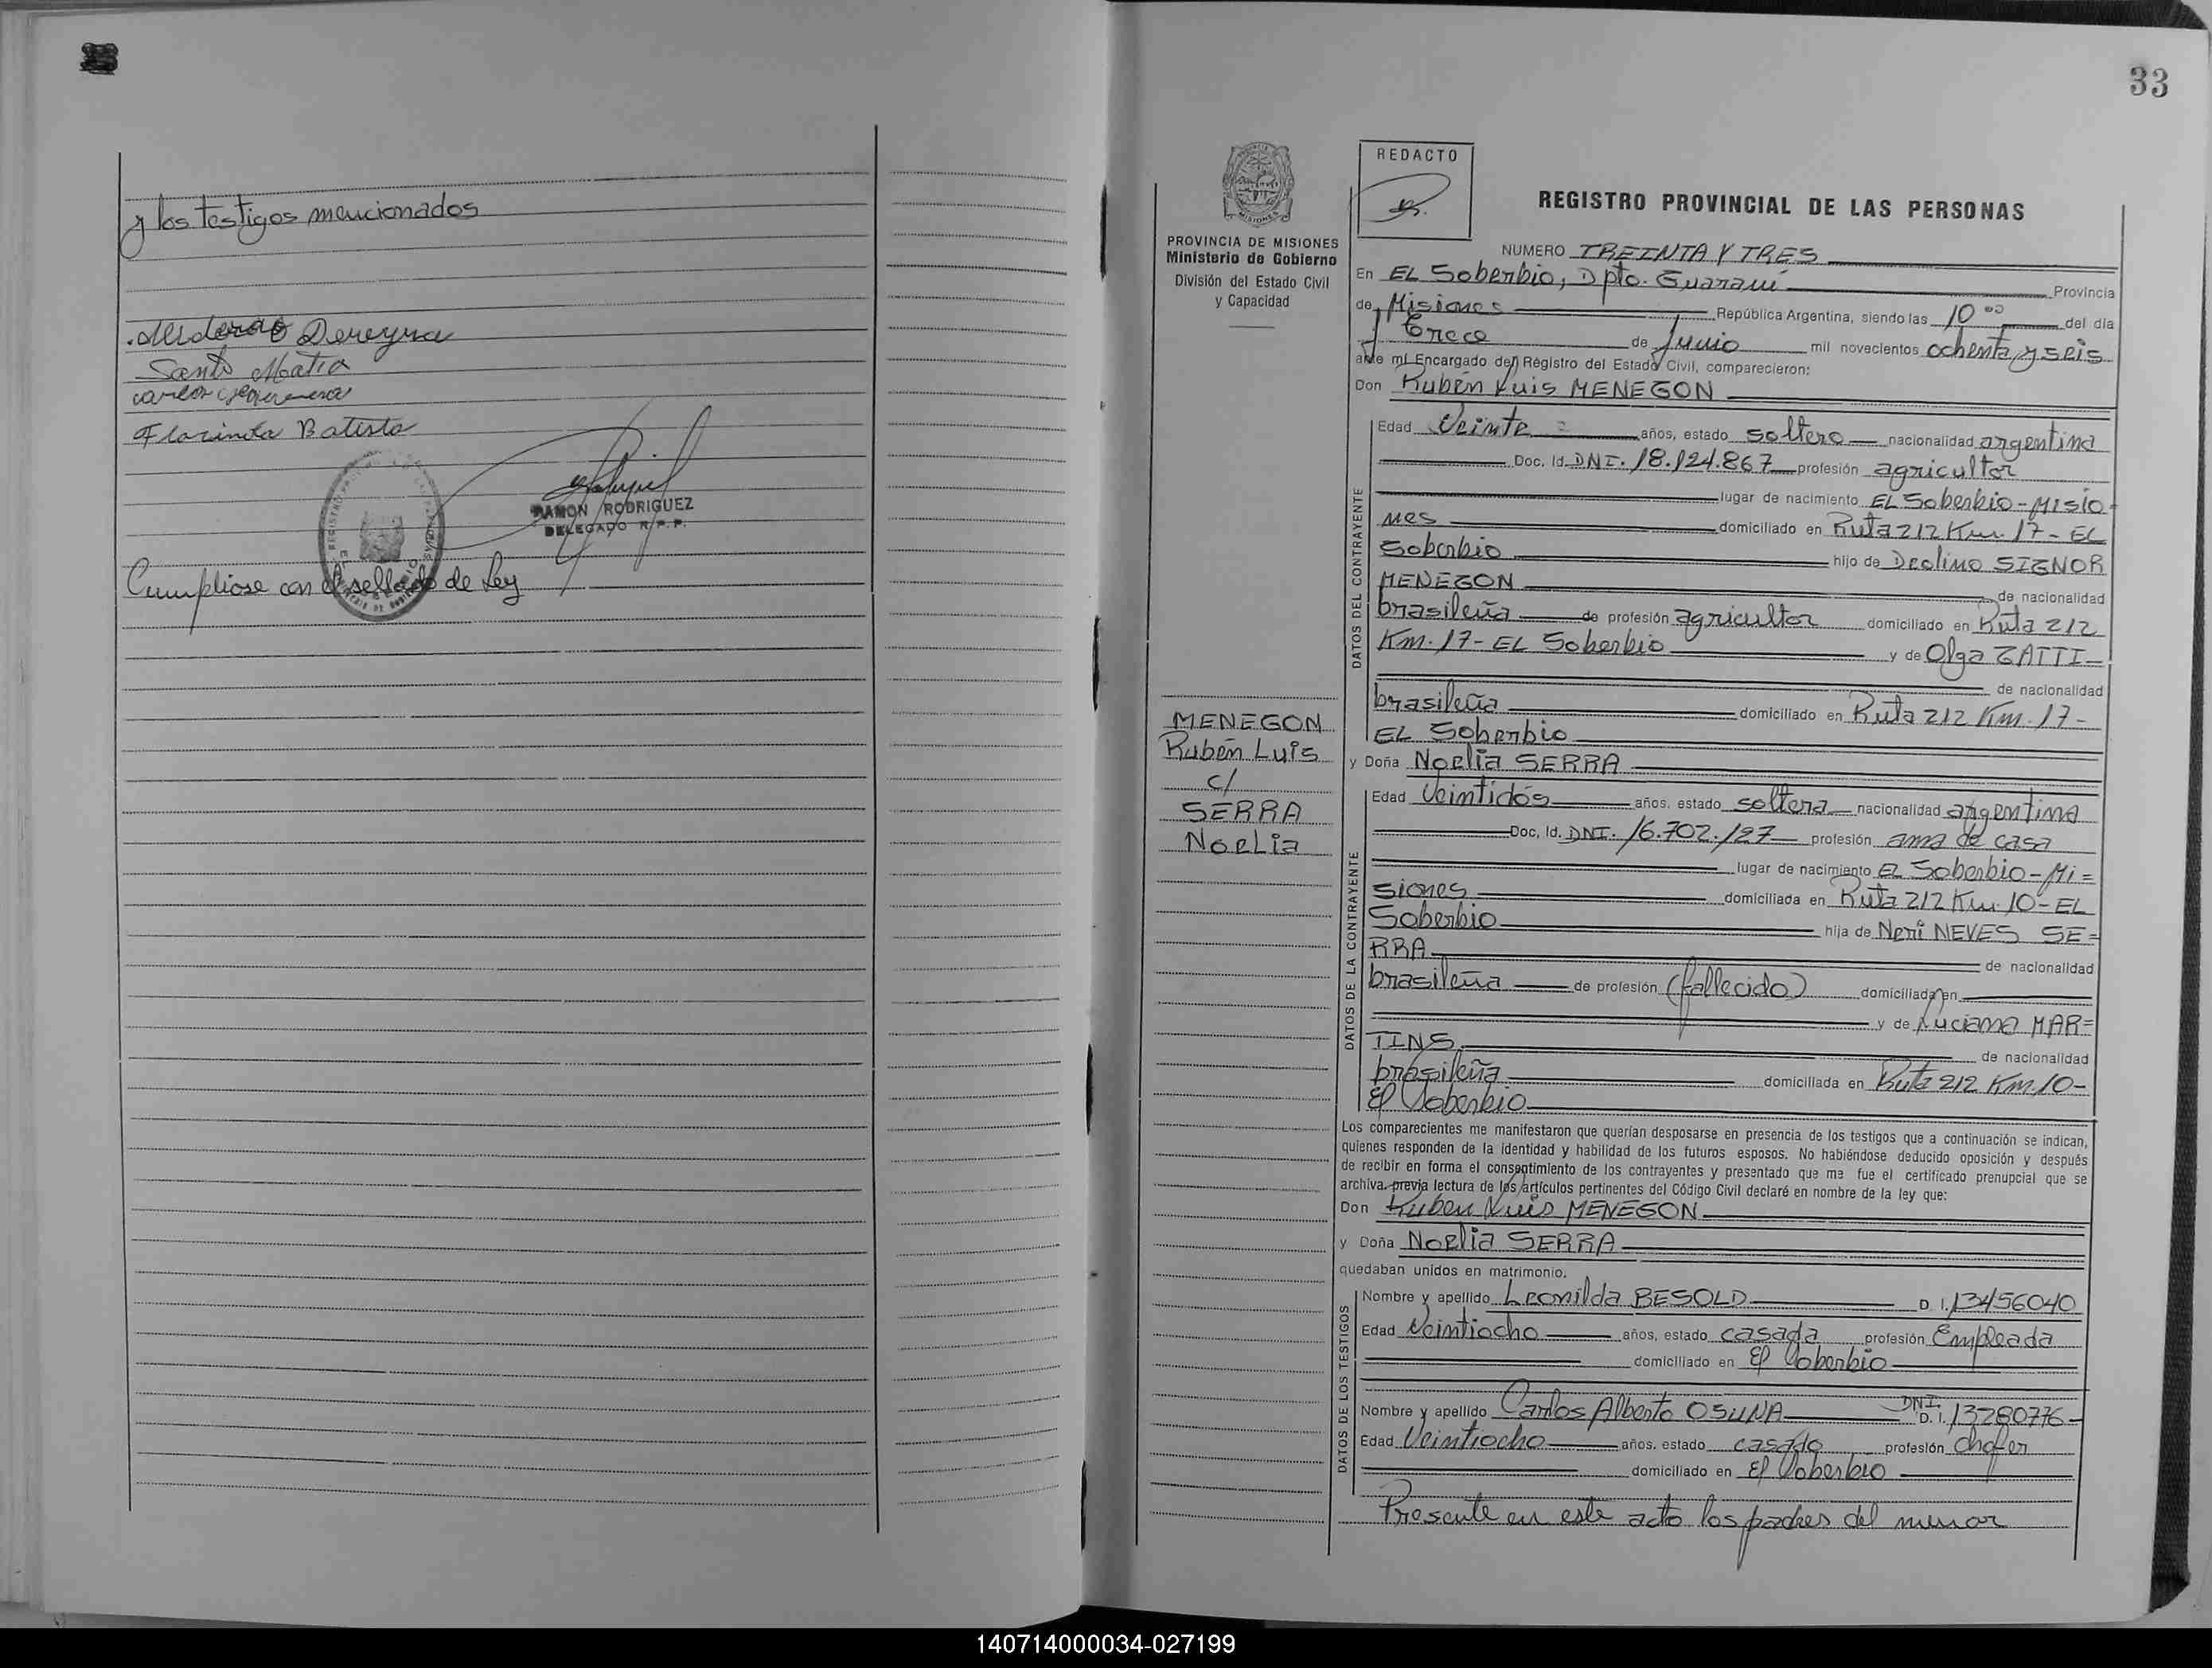 y los testigos mencionados
Dereyra
Santo
Florinda Batista
RAMON RODRIGUEZ
DELEGADO R.P.P.
Cumpliose con el sellado de Ley
33
PROVINCIA DE MISIONES
Ministerio de Gobierno
División del Estado Civil
y Capacidad
MENEGON
Rubén Luis
c/
SERRA
Noelia
REDACTO
REGISTRO PROVINCIAL DE LAS PERSONAS
NUMERO TREINTA Y TRES
En EL Soberbio, Dpto. Guaraní Provincia
de Misiones República Argentina, siendo las 10 00 del día
trece de Junio mil novecientos ochenta y seis
ante mí Encargado del Registro del Estado Civil, comparecieron:
Don Rubén Luis MENEGON
DATOS DEL CONTRAYENTE
Edad Veinte años, estado soltero nacionalidad argentina
Doc. Id. DNI. 18.124.867 profesión agricultor
lugar de nacimiento EL Soberbio-Misio-
nes domiciliado en Ruta 212 Km. 17- EL
Soberbio hijo de Deolino SIGNOR
MENEGON de nacionalidad
brasileña de profesión agricultor domiciliado en Ruta 212
Km. 17- EL Soberbio y de Olga ZATTI
de nacionalidad
brasileña domiciliado en Ruta 212 Km. 17-
EL Soberbio
y Doña Noelia SERRA
DATOS DE LA CONTRAYENTE
Edad Veintidós años. estado soltera nacionalidad argentina
Doc, Id. DNI. 16.702.127 profesión ama de casa
lugar de nacimiento EL Soberbio-Mi=
siones domiciliada en Ruta 212 Km. 10- EL
Soberbio hija de Neri NEVES SE=
RRA de nacionalidad
brasileña de profesión (fallecido) domiciliada en
y de Luciana MAR=
TINS de nacionalidad
brasileña domiciliada en Ruta 212 Km. 10-
El Soberbio
Los comparecientes me manifestaron que querían desposarse en presencia de los testigos que a continuación se indican,
quienes responden de la identidad y habilidad de los futuros esposos. No habiéndose deducido oposición y después
de recibir en forma el consentimiento de los contrayentes y presentado que me fue el certificado prenupcial que se
archiva previa lectura de los artículos pertinentes del Código Civil declaré en nombre de la ley que:
Don Ruben Luis MENEGON
y Doña Noelia SERRA
quedaban unidos en matrimonio.
DATOS DE LOS TESTIGOS
Nombre y apellido Leonilda BESOLD D. I. 13456040
Edad Veintiocho años, estado casada profesión Empleada
domiciliado en El Soberbio
Nombre y apellido Carlos Alberto OSUNA DNI. D. I. 13280776
Edad Veintiocho años. estado casado profesión chofer
domiciliado en El Soberbio
Presente en este acto los padres del menor
140714000034-027199